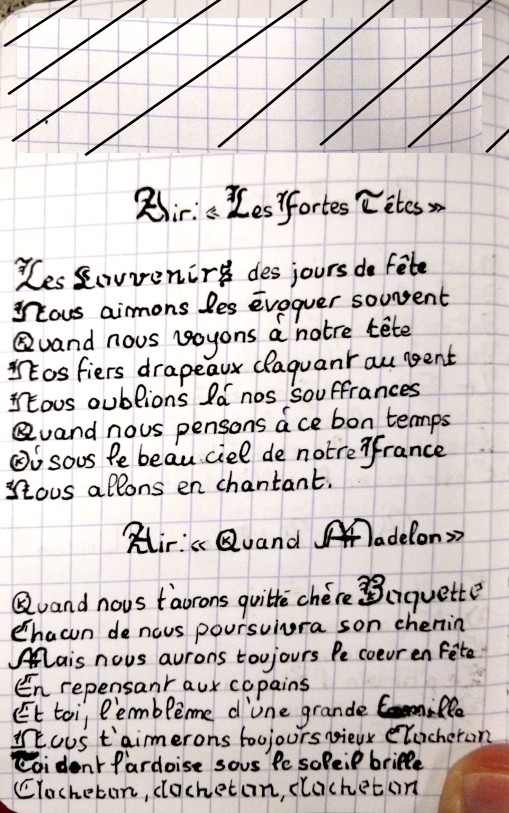 Air: « Les Fortes Têtes »
Les Souvenirs des jours de fête
Nous aimons les évoquer souvent
Quand nous voyons à notre tête
Nos fiers drapeaux claquant au vent
Nous oublions là nos souffrances
Quand nous pensons à ce bon temps
Où sous le beau ciel de notre France
Nous allons en chantant.
Air: « Quand Madelon »
Quand nous t'aurons quitté chère Baquette
Chacun de nous poursuivra son chemin
Mais nous aurons toujours le coeur en fête
En repensant aux copains
Et toi, l'emblême d'une grande famille
Nous t'aimerons toujours vieux Clocheton
Toi dont l'ardoise sous le soleil brille
Clocheton, clocheton, clocheton